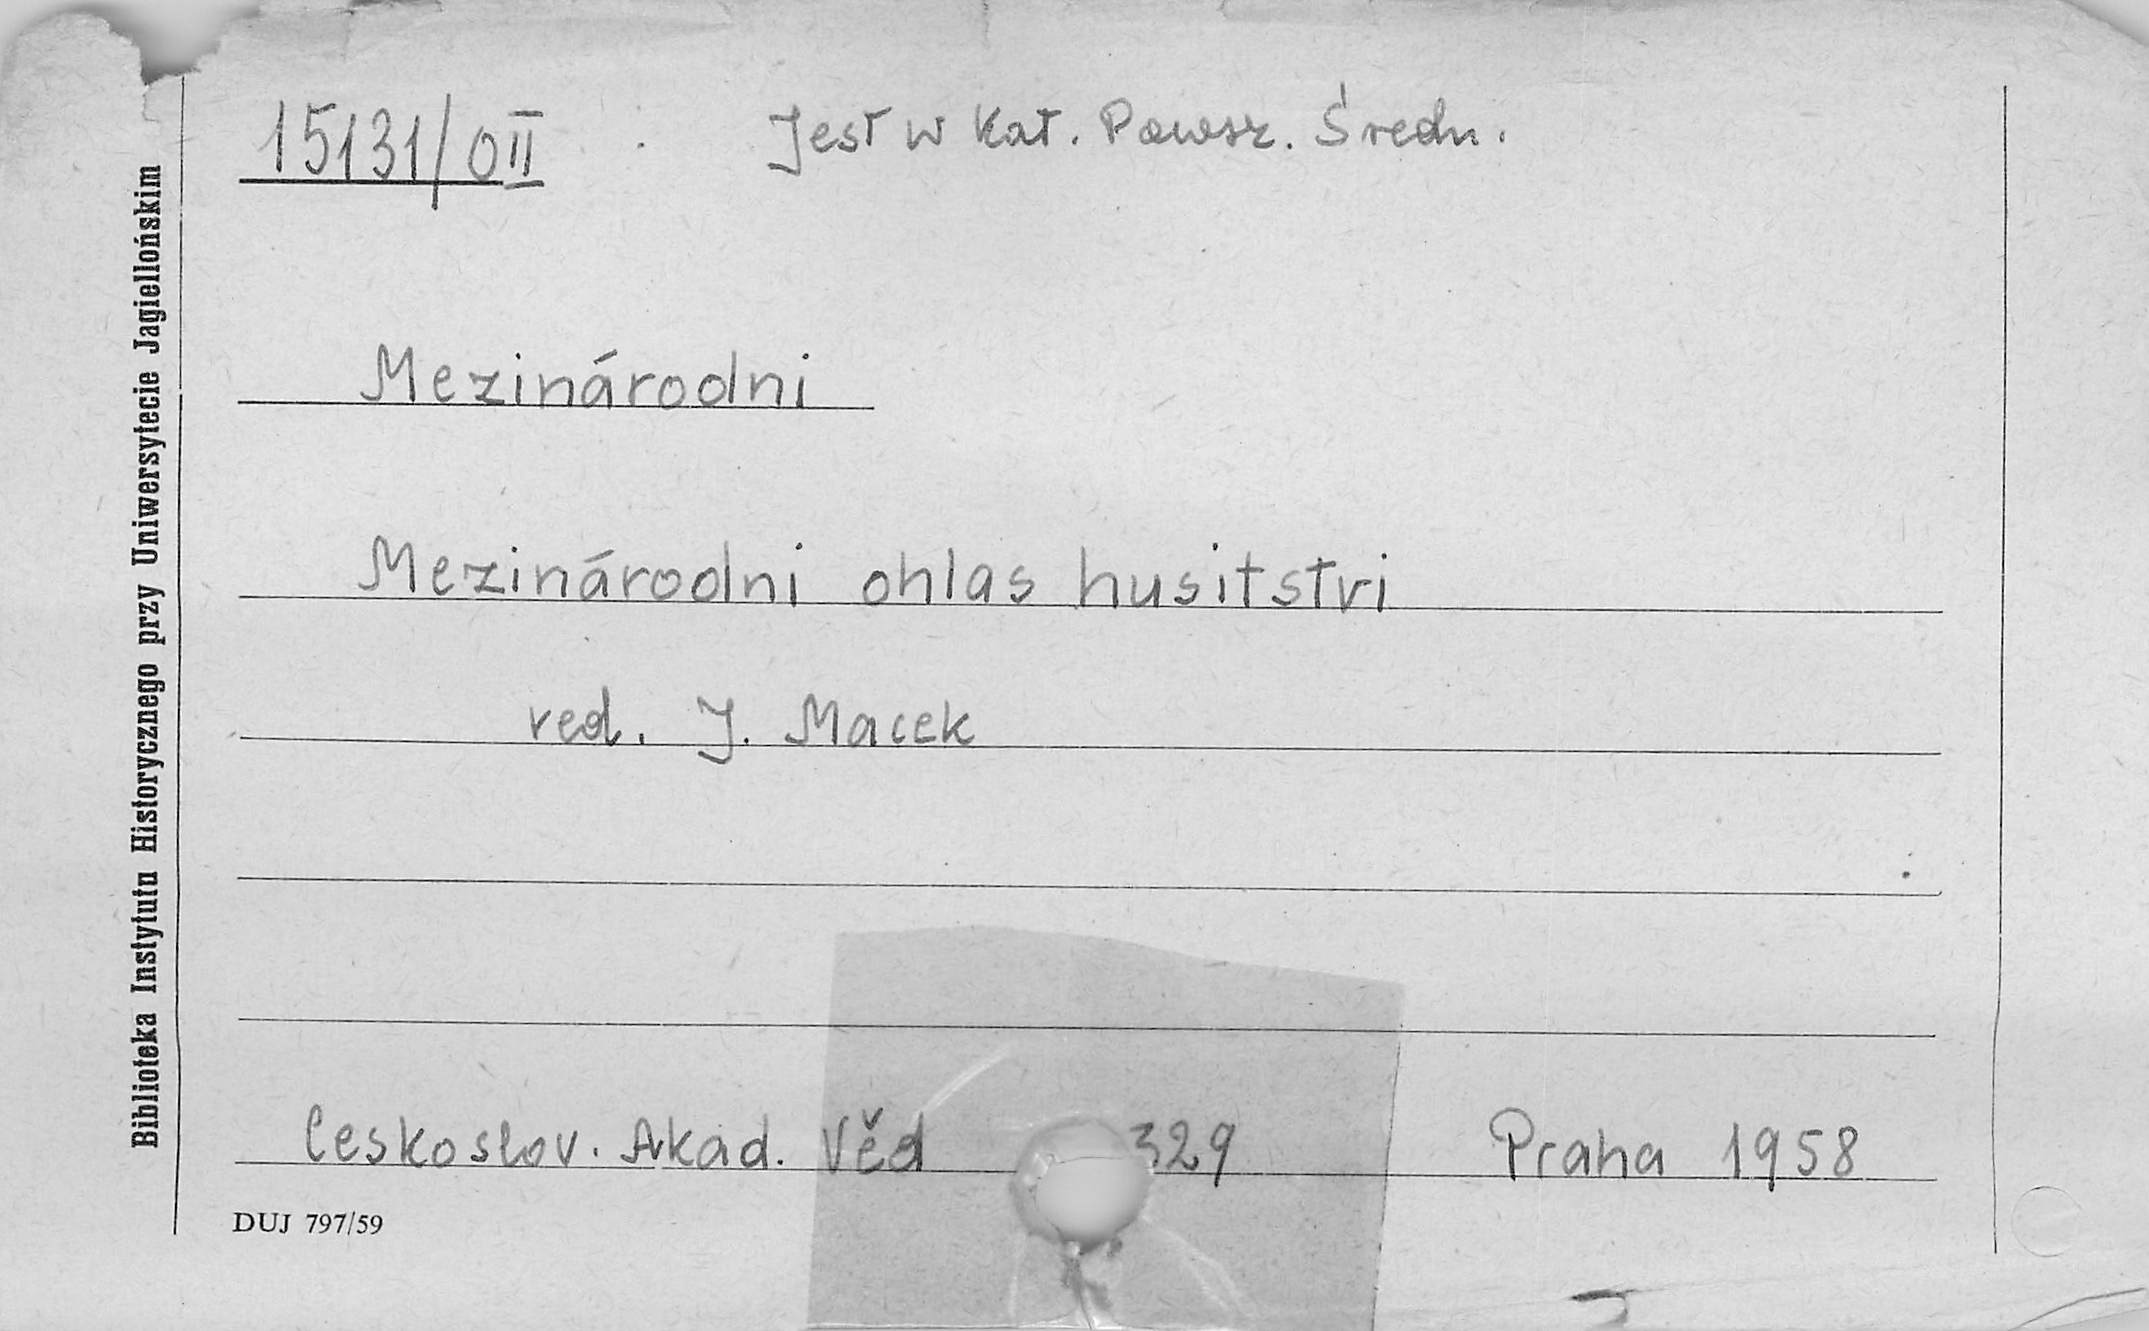 15131/0II Jest w Kat. Powsz. Średn.
Mezinárodni
Mezinárodni ohlas husitstvi
red. J. Macek
Ceskoslov. Akad. Věd 329 Praha 1958
DUJ 797/59
Biblioteka Instytutu Historycznego przy Uniwersytecie Jagiellońskim